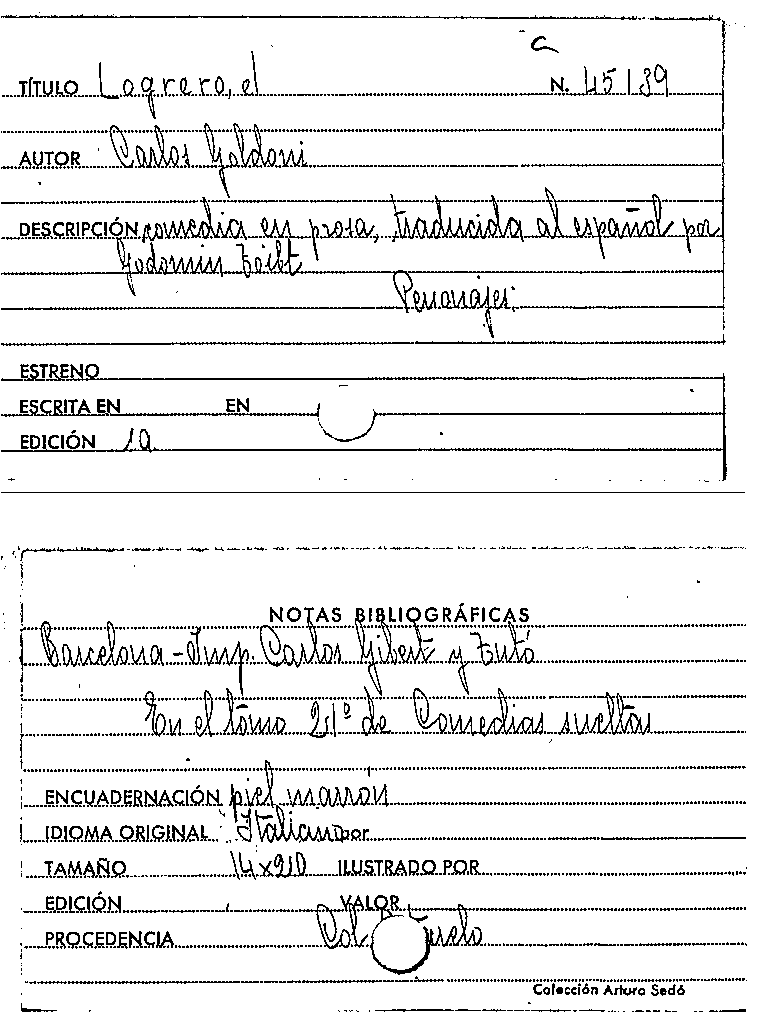 C
TÍTULO Logrero, el N. 45139
AUTOR Carlos Goldoni
DESCRIPCIÓN comedia en prosa, traducida al español por
Personajes:
ESTRENO
ESCRITA EN EN
EDICIÓN 1a
NOTAS BIBLIOGRÁFICAS
Barcelona - Imp. Carlos Gibert y Tutó
En el tomo 21º de Comedias sueltas
ENCUADERNACIÓN piel marrón
IDIOMA ORIGINAL Italiano por
TAMAÑO 14x20 ILUSTRADO POR
EDICIÓN VALOR
PROCEDENCIA Col.
Colección Arturo Sedó